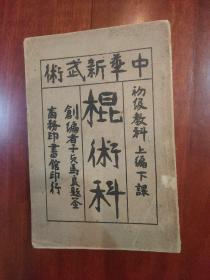 中華新武術
初級教科 上編下課
棍術科
創編者十兵馬良題簽
商務印書館印行